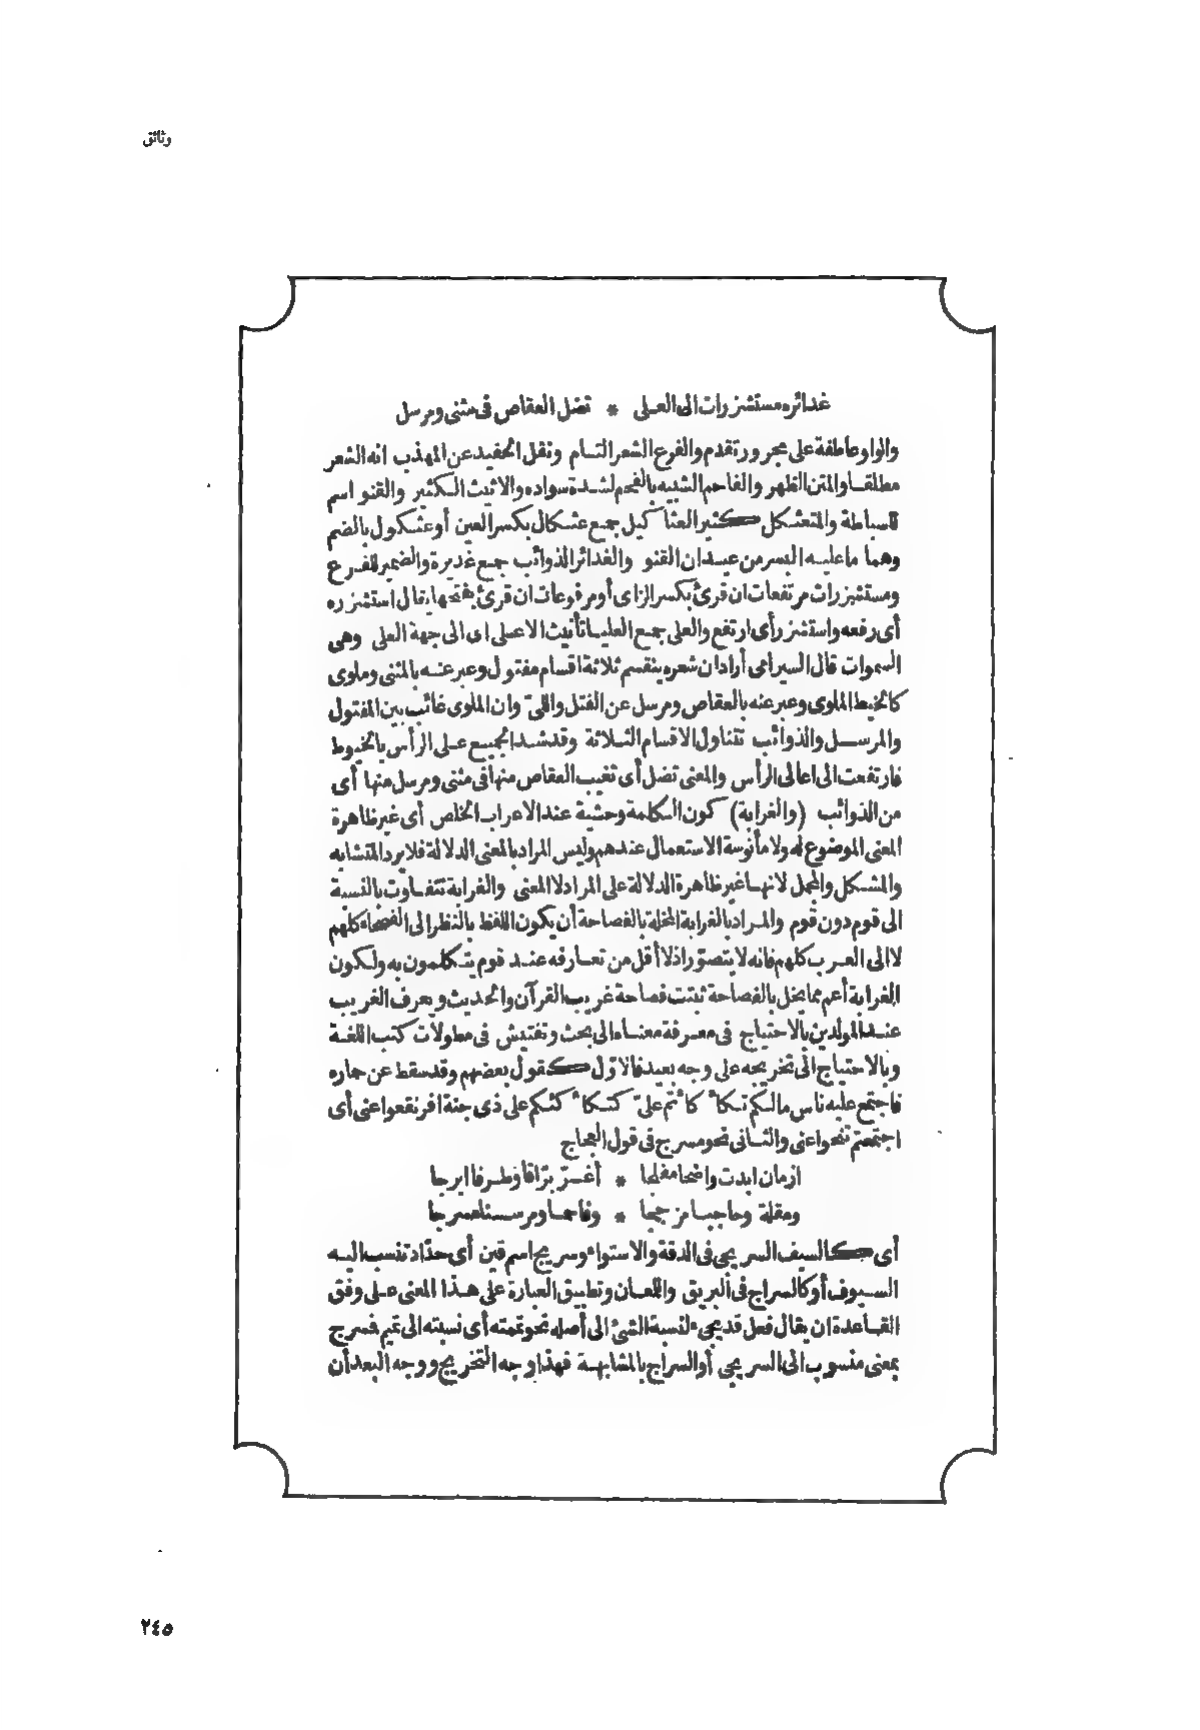 وثائق
غدائره مستشزرات الى العلى * تضل العقاص فى مثنى ومرسل
والواو عاطفة على مجرور تقدم والفرع الشعر التام ونقل الحفيد عن المهذب انه الشعر
مطلقا والمتن الظهر والفاحم الشبيه بالفحم لشدة سواده والاثيث الكثير والقنو اسم
للسباطة والمتعثكل كثير العثاكيل جمع عثكال بكسر العين أو عثكول بالضم
وهما ما عليه البسر من عيدان القنو والغدائر الذوائب جمع غديرة والضمير للفرع
ومستشزرات مرتفعات ان قرئ بكسر الزاى أو مرفوعات ان قرئ بفتحها يقال استشزره
أى رفعه واستشزر أى ارتفع والعلى جمع العليا تأنيث الاعلى اى الى جهة العلى وهى
السموات قال السيرامى أراد ان شعره ينقسم ثلاثة اقسام مفتول وعبر عنه بالمثنى وملوى
كالخيط الملوى وعبر عنه بالعقاص ومرسل عن الفتل واللى وان الملوى غائب بين المفتول
والمرسل والذوائب تتناول الاقسام الثلاثة وقد شد الجميع على الرأس بالخيوط
فارتفعت الى اعالى الرأس والمعنى تضل أى تغيب العقاص منها فى مثنى ومرسل منها أى
من الذوائب (والغرابة) كون الكلمة وحشية عند الاعراب الخلص أى غير ظاهرة
المعنى الموضوع له ولا مأنوسة الاستعمال عندهم وليس المراد بالمعنى الدلالة فلا يرد المتشابه
والمشكل والمجمل لانها غير ظاهرة الدلالة على المراد لا المعنى والغرابة تتفاوت بالنسبة
الى قوم دون قوم والمراد بالغرابة المخلة بالفصاحة أن يكون اللفظ بالنظر الى الفصحاء كلهم
لا الى العرب كلهم فانه لا يتصور اذ لا أقل من تعارفه عند قوم يتكلمون به ولكون
الغرابة أعم مما يخل بالفصاحة ثبتت فصاحة غريب القرآن والحديث ويعرف الغريب
عند المولدين بالاحتياج فى معرفة معناه الى بحث وتفتيش فى مطولات كتب اللغة
وبالاحتياج الى تخريجه على وجه بعيد فالاول كقول بعضهم وقد سقط عن حماره
فاجتمع عليه ناس مالكم تكأ كأ تم على كتكا كئكم على ذى جنة افرنقعوا عنى أى
اجتمعتم تنحوا عنى والثانى نحو مسرج فى قول العجاج
ازمان ابدت واضحا مفلجا * أغر براقا وطرفا ابرجا
ومقلة وحاجبا مزججا * وفاحما ومرسنا مسرجا
أى كالسيف السريجى فى الدقة والاستواء وسريج اسم قين أى حداد تنسب اليه
السيوف أو كالسراج فى البريق واللمعان وتطبيق العبارة على هذا المعنى على وفق
القاعدة ان يقال فعل قد يجىء لنسبة الشئ الى أصله نحو تممته أى نسبته الى تميم فسرج
بمعنى منسوب الى السريجى أو السراج بالمشابهة فهذا وجه التخريج ووجه البعد أن
٢٤٥